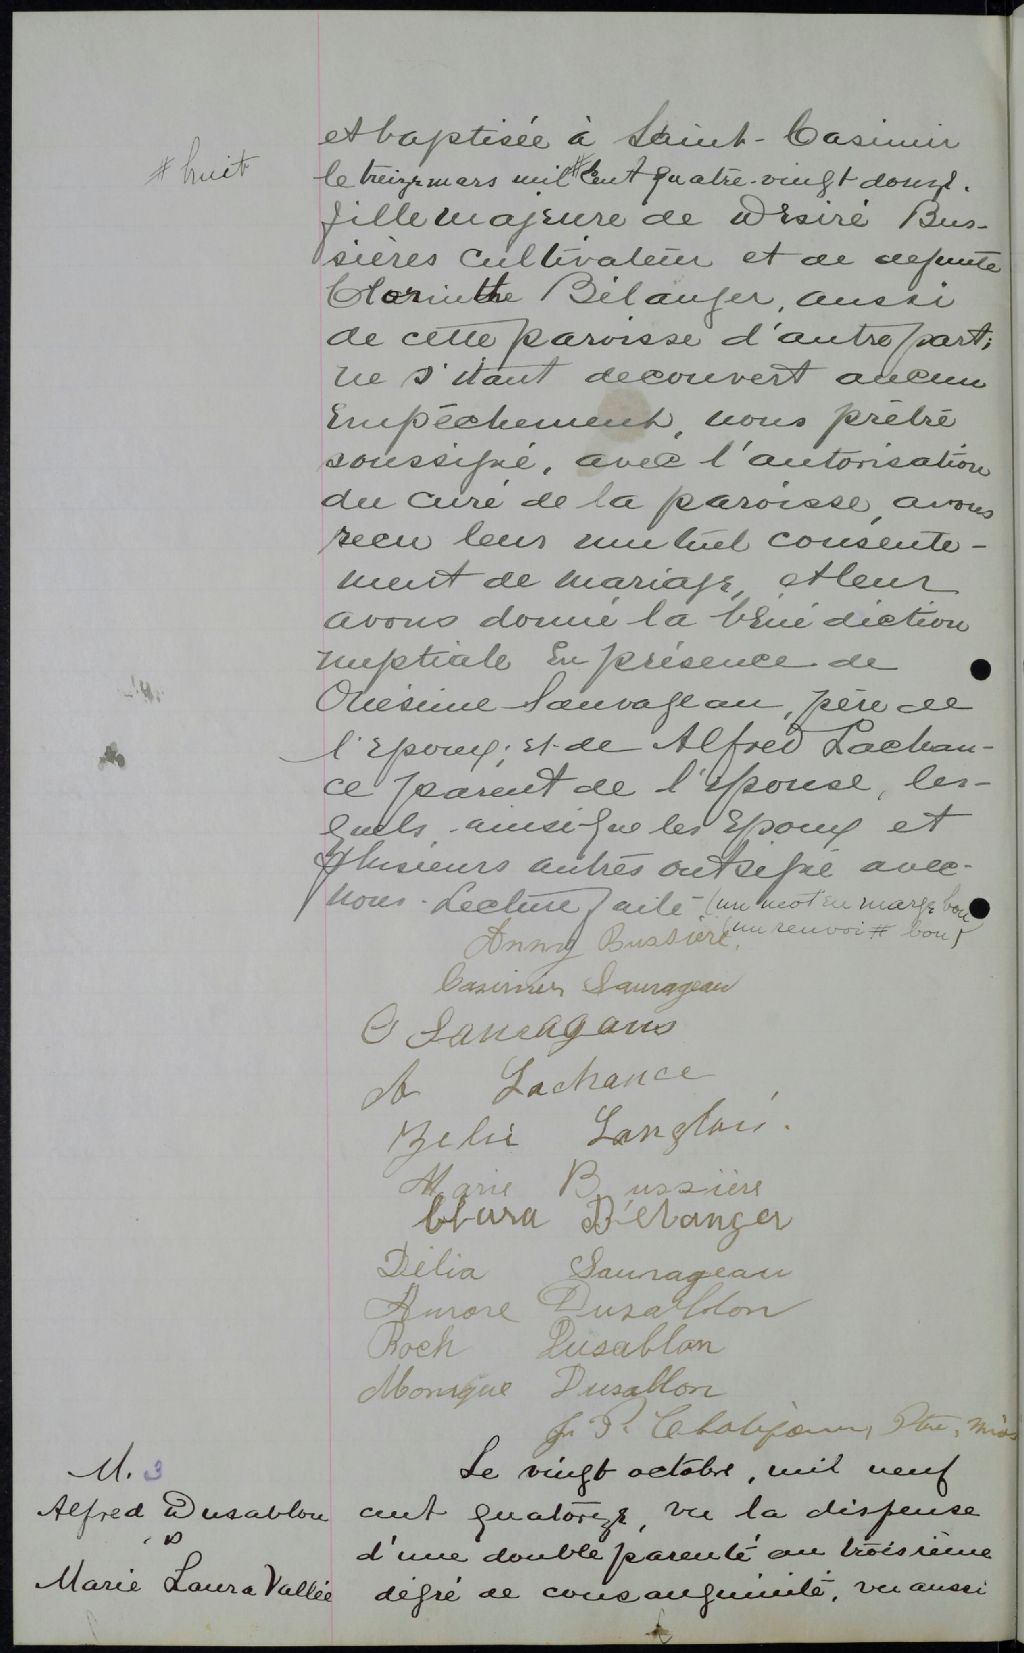 et baptisée à Saint-Casimir
# huit
le treize mars mil # cent quatre-vingt douze.
fille majeure de Désiré Bus-
sières cultivateur et de defunte
Clorinthe Bélanger, aussi
de cette paroisse d'autre part;
ne s'étant decouvert aucun
Empêchement, nous prêtre
soussigné, avec l'autorisation
du curé de la paroisse, avons
recu leur mutuel consente-
ment de mariage, et leur
avons donné la bénédiction
nuptiale En présence de
Onésime Sauvageau, père de
l'Epoux; et de Alfred Lachan-
ce parent de l'épouse, les-
quels ainsi que les Epoux et
plusieurs autres ont signé avec
nous. Lecture faite (un mot en marge bon
(un renvoi # bon)
Anny Bussière.
Casimir Sauvageau
O Sauvageau
A Lachance
Zelie Langlois.
Marie Bussière
Clara Bélanger
Délia Sauvageau
Aurore Dusablon
Roch Dusablon
Monique Dusablon
J. P. Ptre, miss
M. 3
Alfred Dusablon
&
Marie Laura Vallée
Le vingt octobre, mil neuf
cent quatorze, vu la dispense
d'une double parenté au troisième
dégré de consanguinité, vu aussi